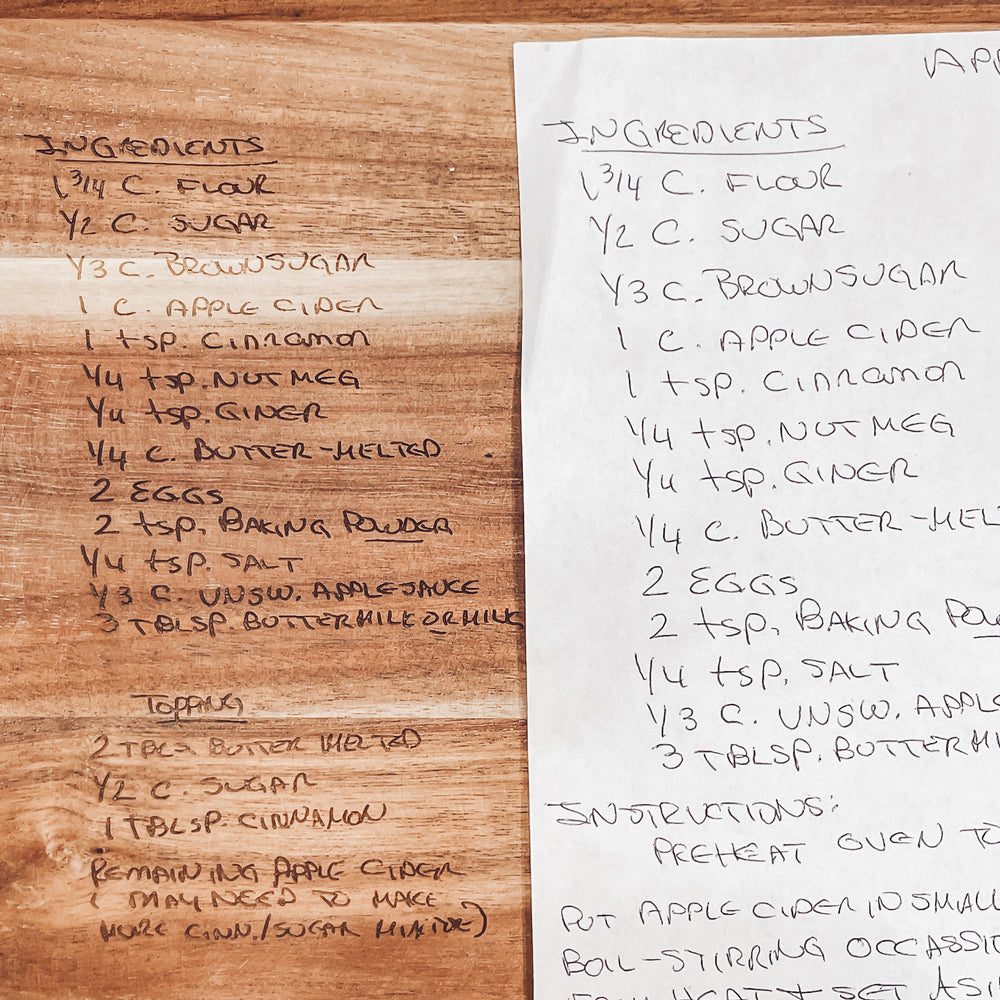 INGREDIENTS
1 3/4 C. FLOUR
1/2 C. SUGAR
1/3 C. BROWN SUGAR
1 C. APPLE CIDER
1 tsp. Cinnamon
1/4 tsp. NUTMEG
1/4 tsp. GINER
1/4 C. BUTTER-MELTED
2 EGGS
2 tsp. BAKING POWDER
1/4 tsp. SALT
1/3 C. UNSW. APPLESAUCE
3 TBLSP. BUTTERMILK OR MILK
TOPPING
2 TBLS BUTTER MELTED
1/2 C. SUGAR
1 TBLSP. CINNAMON
REMAINING APPLE CIDER
( MAY NEED TO MAKE
MORE CINN./SUGAR MIXTURE)
APP
INGREDIENTS
1 3/4 C. FLOUR
1/2 C. SUGAR
1/3 C. BROWN SUGAR
1 C. APPLE CIDER
1 tsp. Cinnamon
1/4 tsp. NUTMEG
1/4 tsp. GINER
1/4 C. BUTTER-MELT
2 EGGS
2 tsp. BAKING POW
1/4 tsp. SALT
1/3 C. UNSW. APPLE
3 TBLSP. BUTTERMI
INSTRUCTIONS:
PREHEAT OVEN TO
PUT APPLE CIDER IN SMALL
BOIL-STIRRING OCCASSIO
FROM HEAT + SET ASI